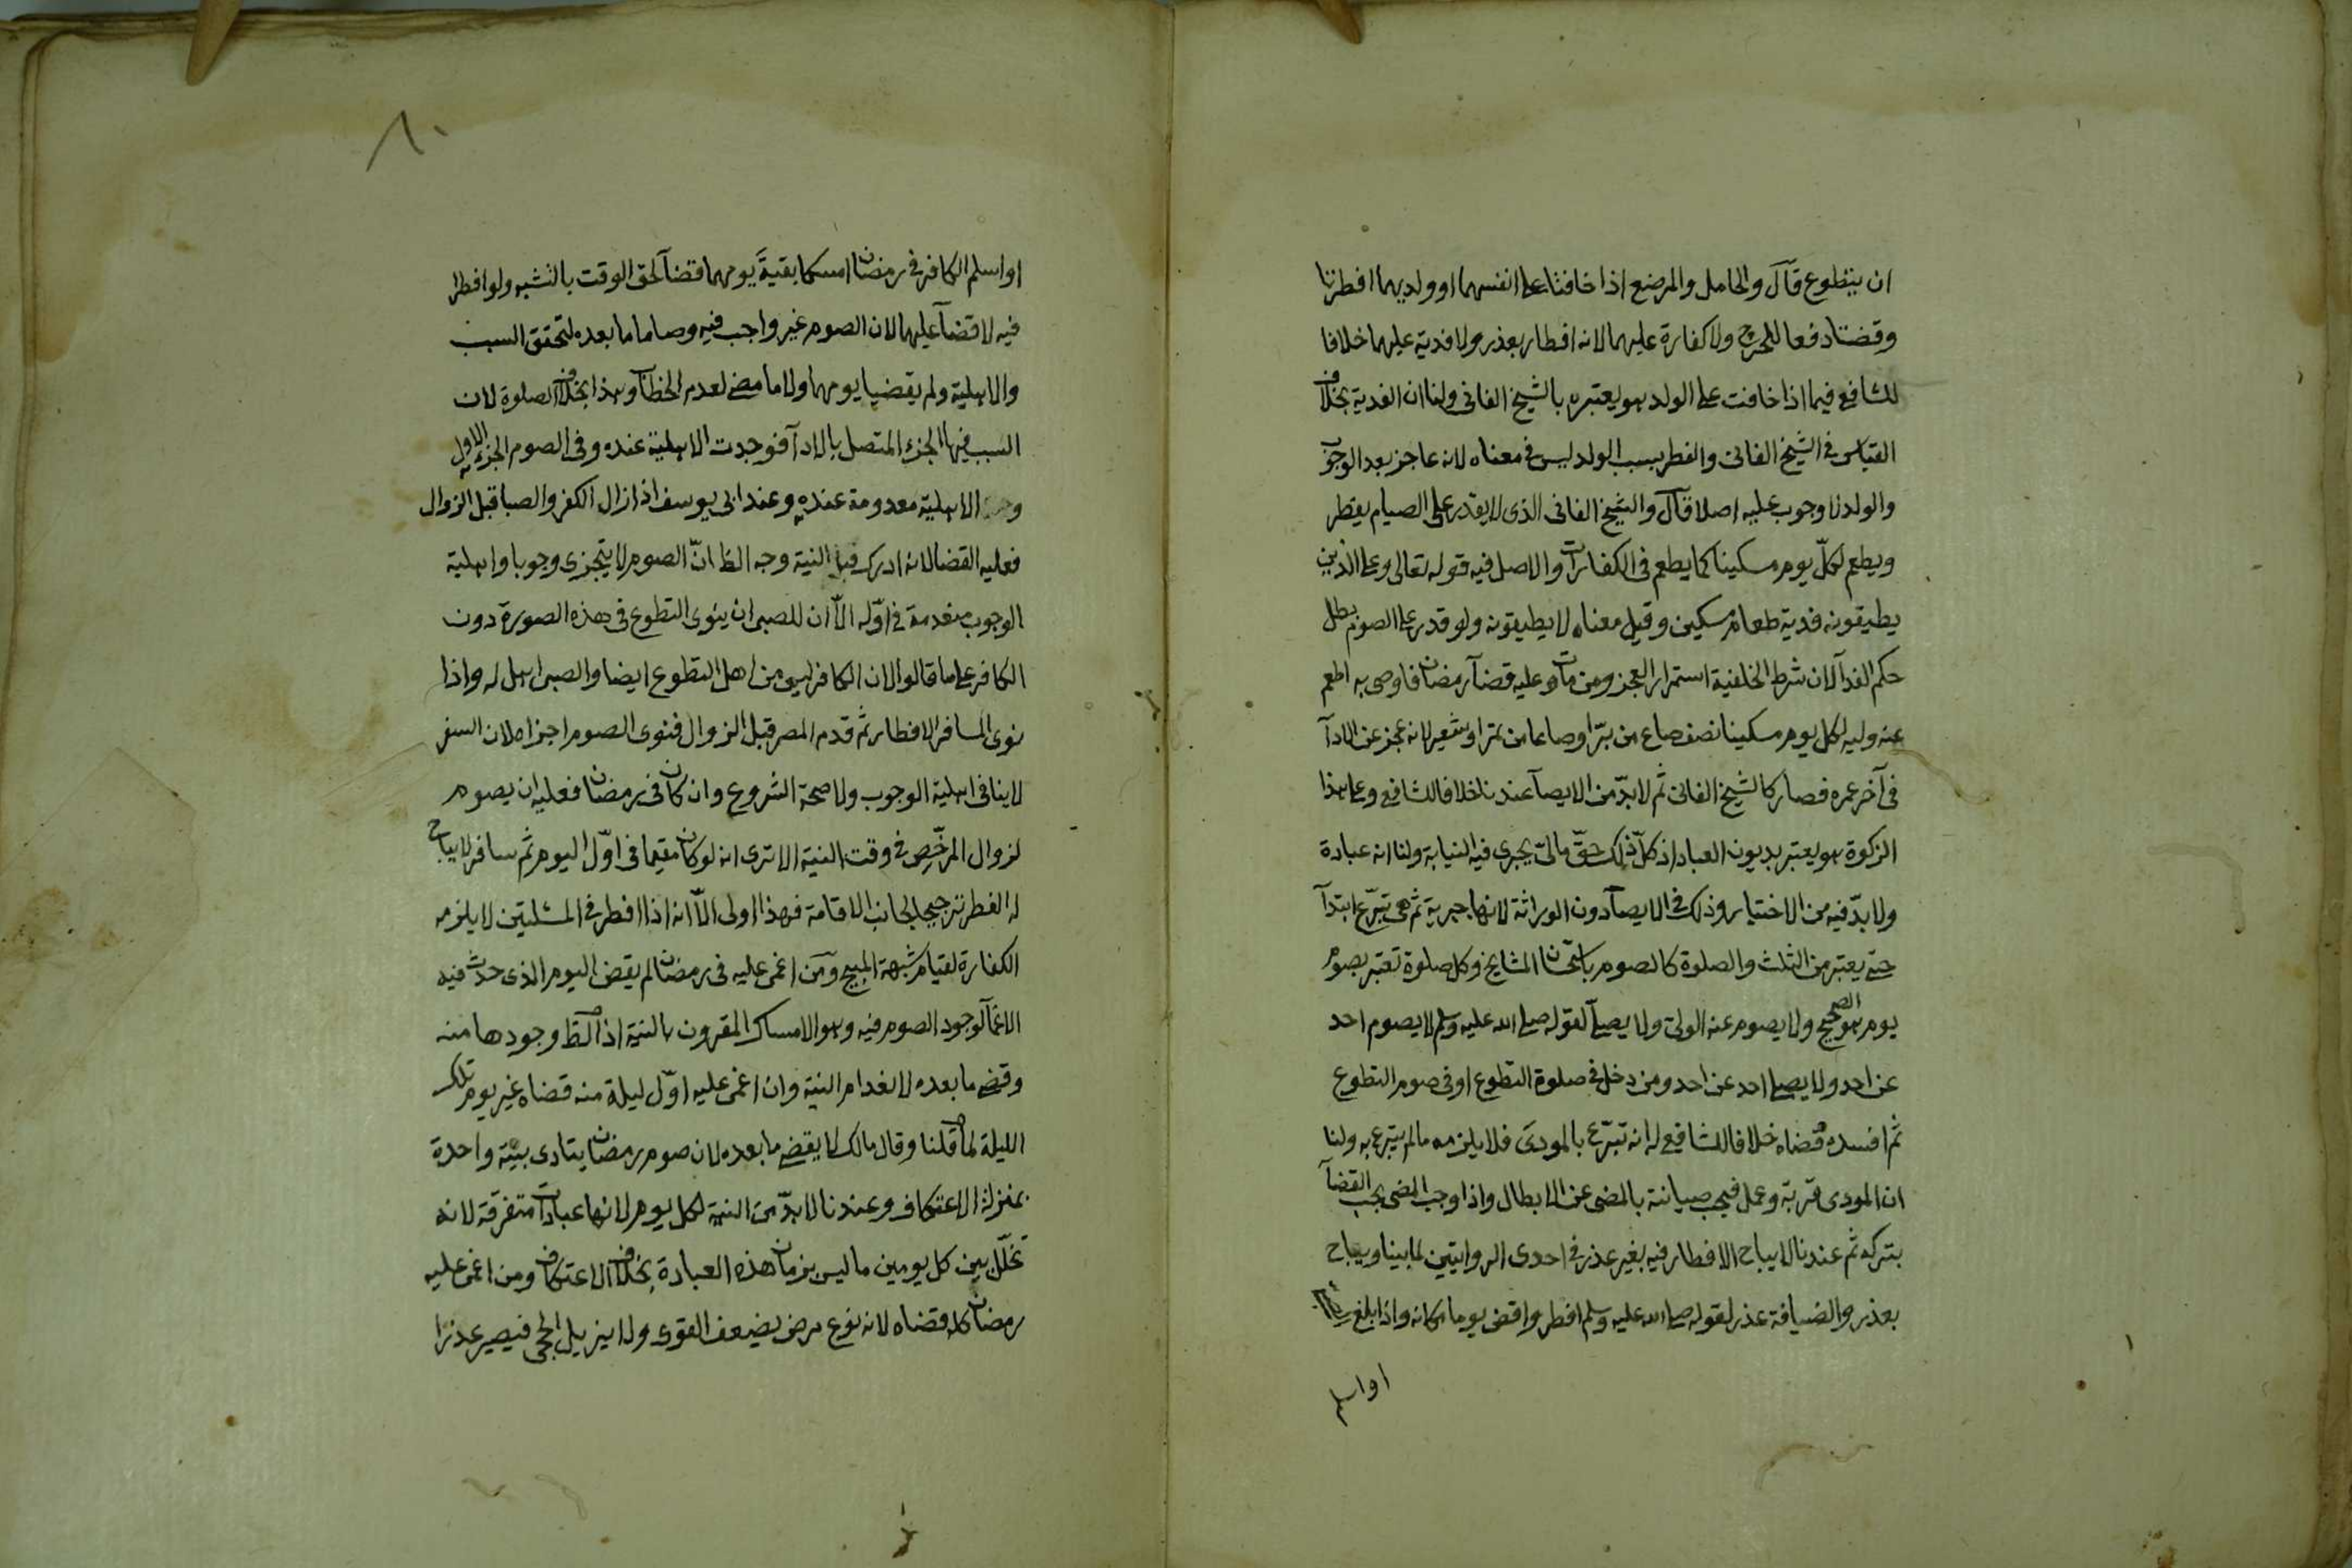 ان يتطوع قال والحامل والمرضع اذا خافتا على انفسهما او ولديهما افطرتا
وقضتا دفعا للحرج ولا كفارة عليهما لانه افطار بعذر ولا فدية عليهما خلافا
للشافعي فيما اذا خافت على الولد هو يعتبره بالشيخ الفاني ولنا ان الفدية بخلاف
القياس في الشيخ الفاني والفطر بسبب الولد ليس في معناه لانه عاجز بعد الوجوب
والولد لا وجوب عليه اصلا قال والشيخ الفاني الذى لا يقدر على الصيام يفطر
ويطعم لكل يوم مسكينا كما يطعم في الكفارات والاصل فيه قوله تعالى وعلى الذين
يطيقونه فدية طعام مسكين وقيل معناه لا يطيقونه ولو قدر على الصوم بطل
حكم الفدآ لان شرط الخلفية استمرار العجز ومن مات وعليه قضآ رمضان فاوصى به اطعم
عنه وليه لكل يوم مسكينا نصف صاع من بر او صاعا من تمر او شعير لانه عجز عن الادآ
في آخر عمره فصار كالشيخ الفاني ثم لا بدّ من الايصآ عندنا خلافا للشافعي وعلى هذا
الزكوة هو يعتبر بديون العباد اذ كلّ ذلك حقّ مالىّ يجرى فيه النيابة ولنا انه عبادة
ولا بدّ فيه من الاختيار وذلك في الايصآ دون الوراثة لانها جبرية ثم هي تبرّع ابتدآ
حتى يعتبر من الثلث والصلوة كالصوم باستحسان المشايخ وكل صلوة تعتبر بصوم
يوم هو الصحيح ولا يصوم عنه الولىّ ولا يصلى لقوله صلى الله عليه وسلم لا يصوم احد
عن احد ولا يصلى احد عن احد ومن دخل في صلوة التطوع او في صوم التطوع
ثم افسده قضاه خلافا للشافعي له انه تبرّع بالمودى فلا يلزمه ما لم يتبرع به ولنا
ان المودى قربة وعمل فيجب صيانته بالمضى عن الابطال واذا وجب المضى يجب القضآ
بتركه ثم عندنا لا يباح الافطار فيه بغير عذر في احدى الروايتين لما بينا ويباح
بعذر والضيافة عذر لقوله صلى الله عليه وسلم افطر واقض يوما مكانه واذا بلغ
او اسلم
٨٠
او اسلم الكافر في رمضان امسكا بقية يومهما قضآ لحق الوقت بالتشبه ولو افطرا
فيه لا قضآ عليهما لان الصوم غير واجب فيه وصاما ما بعده لتحقق السبب
والاهلية ولم يقضيا يومهما ولا ما مضى لعدم الخطاب وهذا بخلاف الصلوة لان
السبب فيها الجزء المتصل بالادآ فوجدت الاهلية عنده وفي الصوم الجزء الاول
الاهلية معدومة عنده وعند ابي يوسف اذا زال الكفر والصبا قبل الزوال
فعليه القضا لانه ادرك النية وجه الظ انّ الصوم لا يتجزى وجوبا واهلية
الوجوب منعدمة في اوّله الاّ ان للصبى ان ينوى التطوع في هذه الصورة دون
الكافر على ما قالوا لان الكافر ليس من اهل التطوع ايضا والصبى اهل له واذا
نوى المسافر الافطار ثم قدم المصر قبل الزوال فنوى الصوم اجزاه لان السفر
لا ينافي اهلية الوجوب ولا صحة الشروع وان كان في رمضان فعليه ان يصوم
لزوال المرخّص في وقت النية الا ترى انه لو كان مقيما في اوّل اليوم ثم سافر لا يباح
له الفطر ترجيحا لجانب الاقامة فهذا اولى الاّ انه اذا افطر في المسئلتين لا يلزمه
الكفارة لقيام شبهة المبيح ومن اغمى عليه في رمضان لم يقض اليوم الذى حدث فيه
الاغمآ لوجود الصوم فيه وهو الامساك المقرون بالنية اذ الظ وجودها منه
وقضى ما بعده لانعدام النية وان اغمى عليه اوّل ليلة منه قضاه غير يوم تلك
الليلة لما قلنا وقال مالك لا يقضى ما بعده لان صوم رمضان يتادى بنيّة واحدة
بمنزلة الاعتكاف وعندنا لا بدّ من النية لكل يوم لانها عبادات متفرقة لانه
تخلّل بين كل يومين ما ليس بزمان هذه العبادة بخلاف الاعتكاف ومن اغمى عليه
رمضان كله قضاه لانه نوع مرض يضعف القوى ولا يزيل الحجى فيصير عذرا